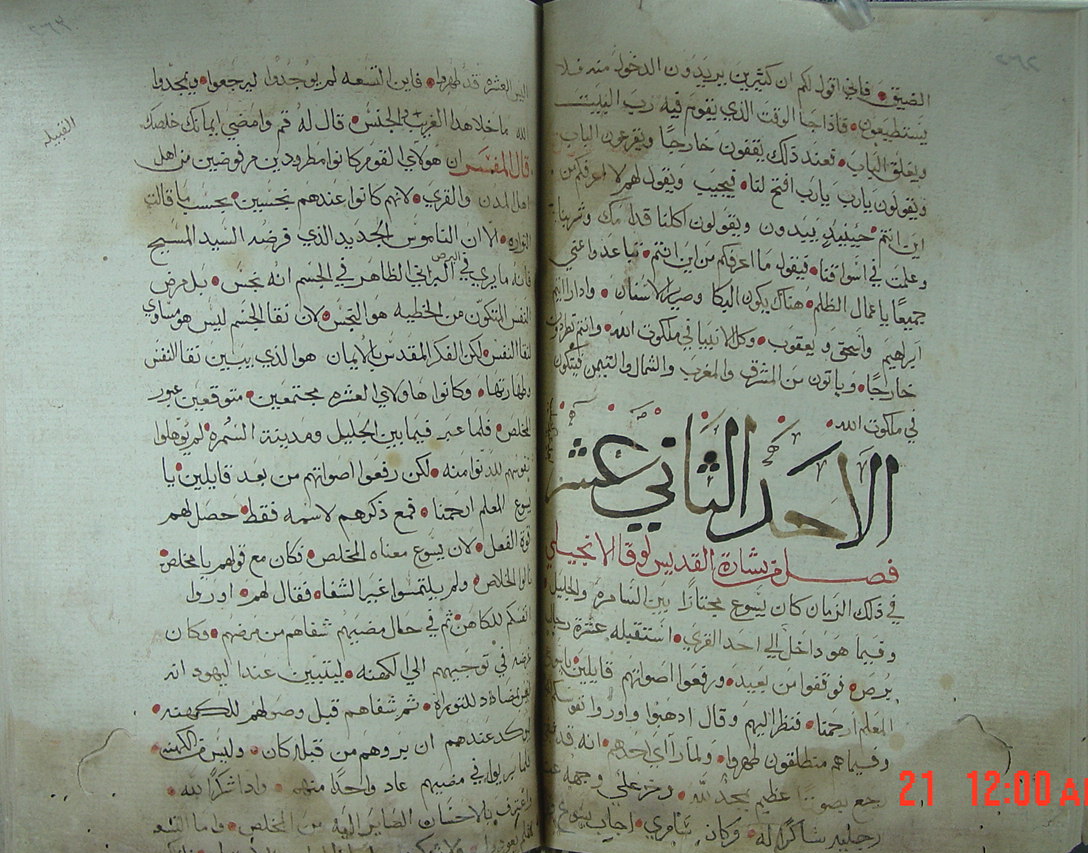 الضيق • فاني اقول لكم ان كثيرين يريدون الدخول منه فلا
يستطيعون • فاذا جا الوقت الذي يقوم فيه رب البيت
ويغلق الباب • فعند ذلك يقفون خارجًا ويقرعون الباب
ويقولون يارب يارب افتح لنا • فيجيب ويقول لهم لا اعرفكم من
اين انتم • حينيذ يبدون ويقولون اكلنا قدامك وشربنا
وعلمت في اسواقنا • فيقول ما اعرفكم من اين انتم • تباعدوا عني
جميعًا يا عمال الظلم • هناك يكون البكا وصرير الاسنان • واذا رايتم
ابراهيم واسحق ويعقوب • وكل الانبيا في ملكوت الله • وانتم تطردون
خارجًا • وياتون من المشرق والمغرب والشمال والتيمن فيتكون
في ملكوت الله •
الاحد الثاني عشر
فصل من بشارة القديس لوقا الانجيلي
في ذلك الزمان كان يسوع مجتازًا بين السامرة والجليل
وفيما هو داخل الى احد القرى • استقبله عشرة رجال
برص • فوقفوا من بعيد • ورفعوا اصواتهم قايلين يايسوع
المعلم ارحمنا • فنظر اليهم وقال اذهبوا واوروا نفوسكم
وفيما هم منطلقون طهروا • ولما راى احدهم • انه قد
رجع بصوت عظيم يمجد لله • وخر على وجهه عند
رجليه شاكرًا له • وكان سامري • اجاب يسوع
اليس العشره قد طهروا • فاين التسعه لم يوجدوا ليرجعوا • ويمجدوا
الله ما خلا هذا الغريب الجنس • قال له قم وامضى ايمانك خلصك
القبيله
قال المفسر ان هولاي القوم كانوا مطرودين مرفوضين من اهل
اهل المدن والقرى • لانهم كانوا عندهم نجسين • بحسب ما قالت
التوراه • الا ان الناموس الجديد الذي فرضه السيد المسيح
فانه ما يرى في البرص البراني الظاهر في الجسم انه نجس • بل مرض
النفس المتكون من الخطيه هو النجس • لان نقا الجسم ليس هو مساوي
لنقا النفس • لكن الفكر المقدس بالايمان هو الذي يبين نقا النفس
وطهارتها • وكانوا هاولاي العشره مجتمعين • متوقعين عبور
المخلص • فلما عبر فيما بين الجليل ومدينة السمره • لم يوهلوا
نفوسهم للدنوا منه • لكن رفعوا اصواتهم من بعد قايلين يا
يسوع المعلم ارحمنا • فمع ذكرهم لاسمه فقط • حصل لهم
قوة الفعل • لان يسوع معناه المخلص • فكان مع قولهم يا مخلص
نالوا الخلاص • ولم يلتمسوا غير الشفا • فقال لهم • اوروا
انفسكم للكاهن • ثم في حال مضيهم شفاهم من مرضهم • وكان
غرضه في توجيههم الى الكهنه • ليتبين عند اليهود انه
ليس بمضادد للتوراة • ثم شفاهم قبل وصولهم للكهنه •
ليوكد عندهم ان بروهم من قبله كان • وليس من الكهنه •
فلما بريوا في مضيهم عاد واحدًا منهم • وادا شكرًا لله •
واعترف بالاحسان الصاير اليه من المخلص • فاما التسعه